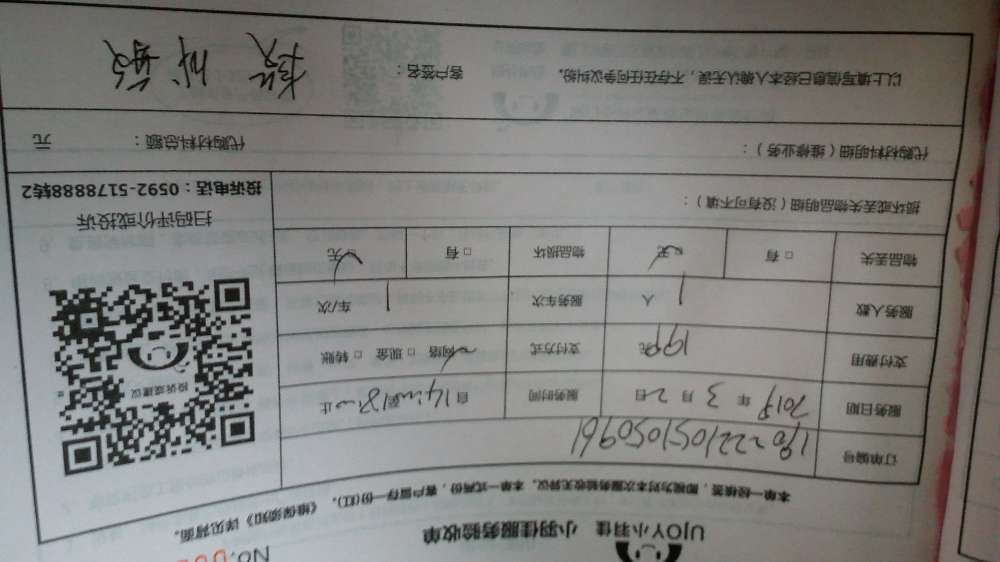 No.
UJOY小羽佳 小羽佳服务验收单
本单一经核签，即视为对本次服务验收无异议，本单一式两份，客户留存一份(红)，《维保须知》详见背面。
订单编号 180222105105096
服务日期 2018 年 3 月 2 日 服务时间 自 14:00 到 18:00 止
支付费用 199元 支付方式 网络 □ 现金 □ 转账
服务人数 1 人 服务车次 1 车/次
物品丢失 □ 有 无 物品损坏 □ 有 无
损坏或丢失物品明细（没有可不填）：
投诉或建议
扫码评价或投诉
投诉电话：0592-5178888转2
代购材料明细（维修业务）： 代购材料总额： 元
以上填写信息已经本人确认无误，不存在任何争议纠纷。 客户签名：